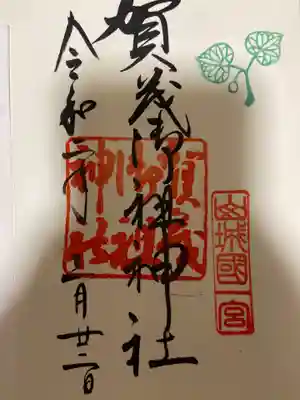 賀茂御祖神社
令和二年十一月廿二日
賀茂
御祖
神社
山城國一宮